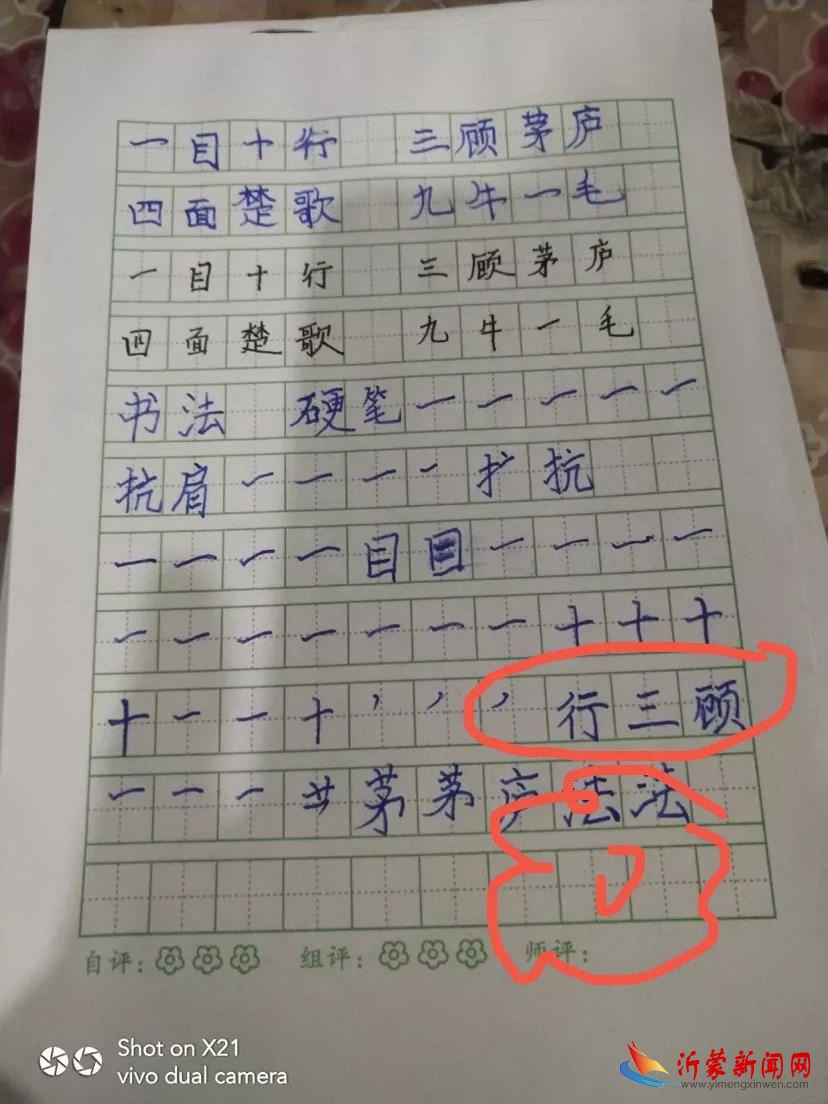 一目十行 三顾茅庐
四面楚歌 九牛一毛
一目十行 三顾茅庐
四面楚歌 九牛一毛
书法 硬笔一一一一一
抗肩一一一一扌抗
一一一一目目一一一一
一一一一一一一十十十
十一一十丿丿丿行三顾
一一一艹茅茅庐法法
自评： 组评： 师评：
Shot on X21
vivo dual camera
沂蒙新闻网
www.yimengxinwen.com